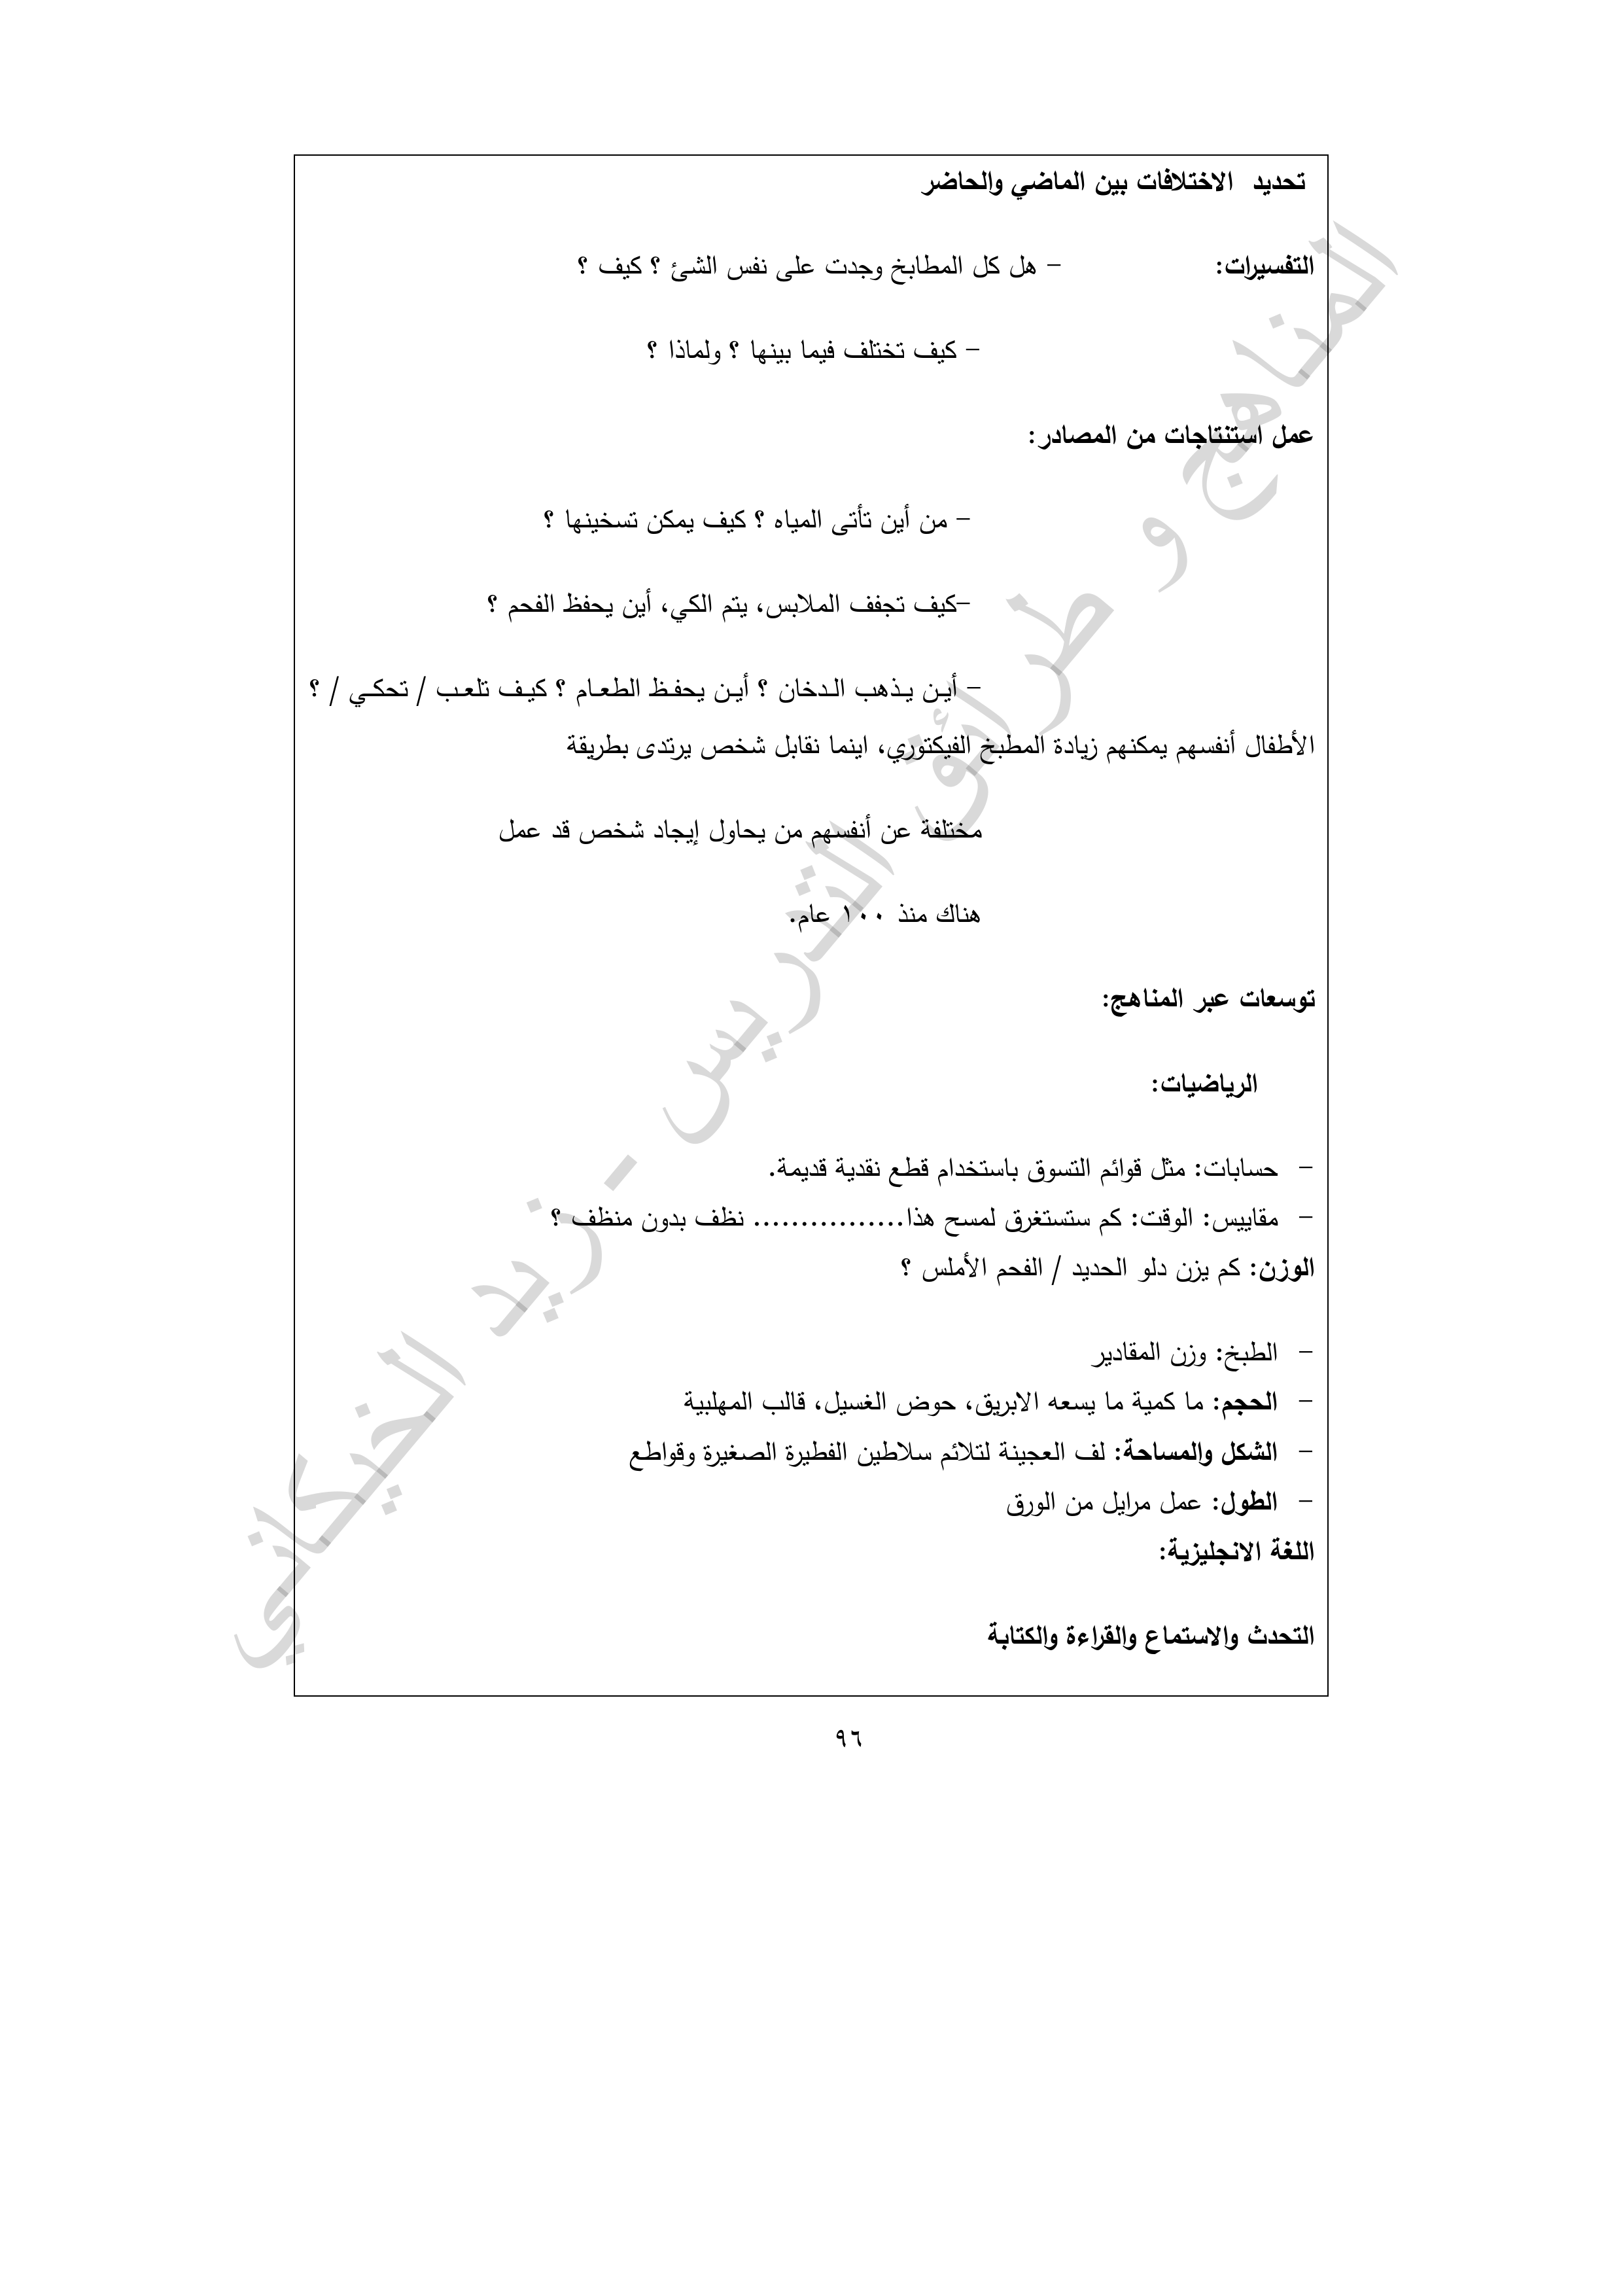 تحديد الاختلافات بين الماضي والحاضر
التفسيرات: – هل كل المطابخ وجدت على نفس الشئ ؟ كيف ؟
– كيف تختلف فيما بينها ؟ ولماذا ؟
عمل استنتاجات من المصادر:
– من أين تأتى المياه ؟ كيف يمكن تسخينها ؟
–كيف تجفف الملابس، يتم الكي، أين يحفظ الفحم ؟
– أين يذهب الدخان ؟ أين يحفظ الطعام ؟ كيف تلعب / تحكي / ؟
الأطفال أنفسهم يمكنهم زيادة المطبخ الفيكتوري، اينما نقابل شخص يرتدى بطريقة
مختلفة عن أنفسهم من يحاول إيجاد شخص قد عمل
هناك منذ ١٠٠ عام.
توسعات عبر المناهج:
الرياضيات:
– حسابات: مثل قوائم التسوق باستخدام قطع نقدية قديمة.
– مقاييس: الوقت: كم ستستغرق لمسح هذا................ نظف بدون منظف ؟
الوزن: كم يزن دلو الحديد / الفحم الأملس ؟
– الطبخ: وزن المقادير
– الحجم: ما كمية ما يسعه الابريق، حوض الغسيل، قالب المهلبية
– الشكل والمساحة: لف العجينة لتلائم سلاطين الفطيرة الصغيرة وقواطع
– الطول: عمل مرايل من الورق
اللغة الانجليزية:
التحدث والاستماع والقراءة والكتابة
٩٦
المناهج و طرائق التدريس - زيد الخيكاني